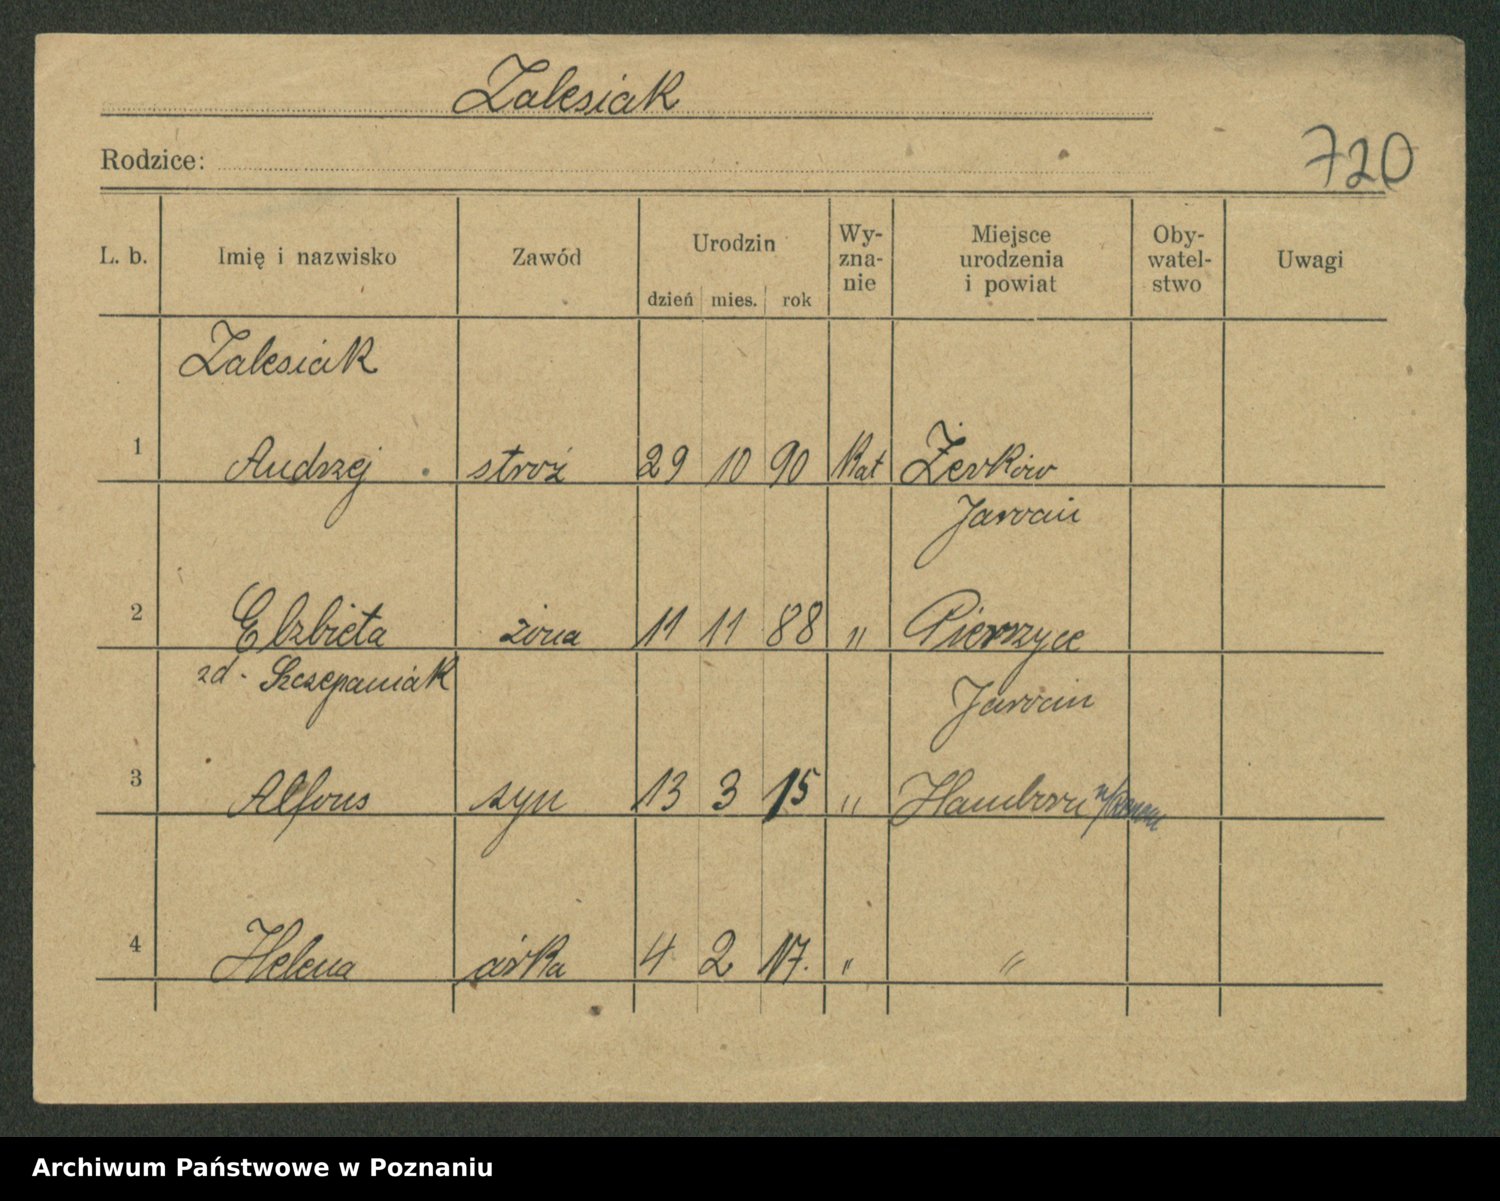 Zalesiak
720
Rodzice:
L. b. Imię i nazwisko Zawód Urodzin dzień mies. rok Wy- zna- nie Miejsce urodzenia i powiat Oby- watel- stwo Uwagi
Zalesiak
1 Andrzej stróż 29 10 90 Kat Żerków
Jarocin
2 Elzbieta żona 11 11 88 " Pierzyce
zd. Szczepaniak Jarocin
3 Alfons syn 13 3 15 " Hamborn
4 Helena córka 4 2 17. " "
Archiwum Państwowe w Poznaniu